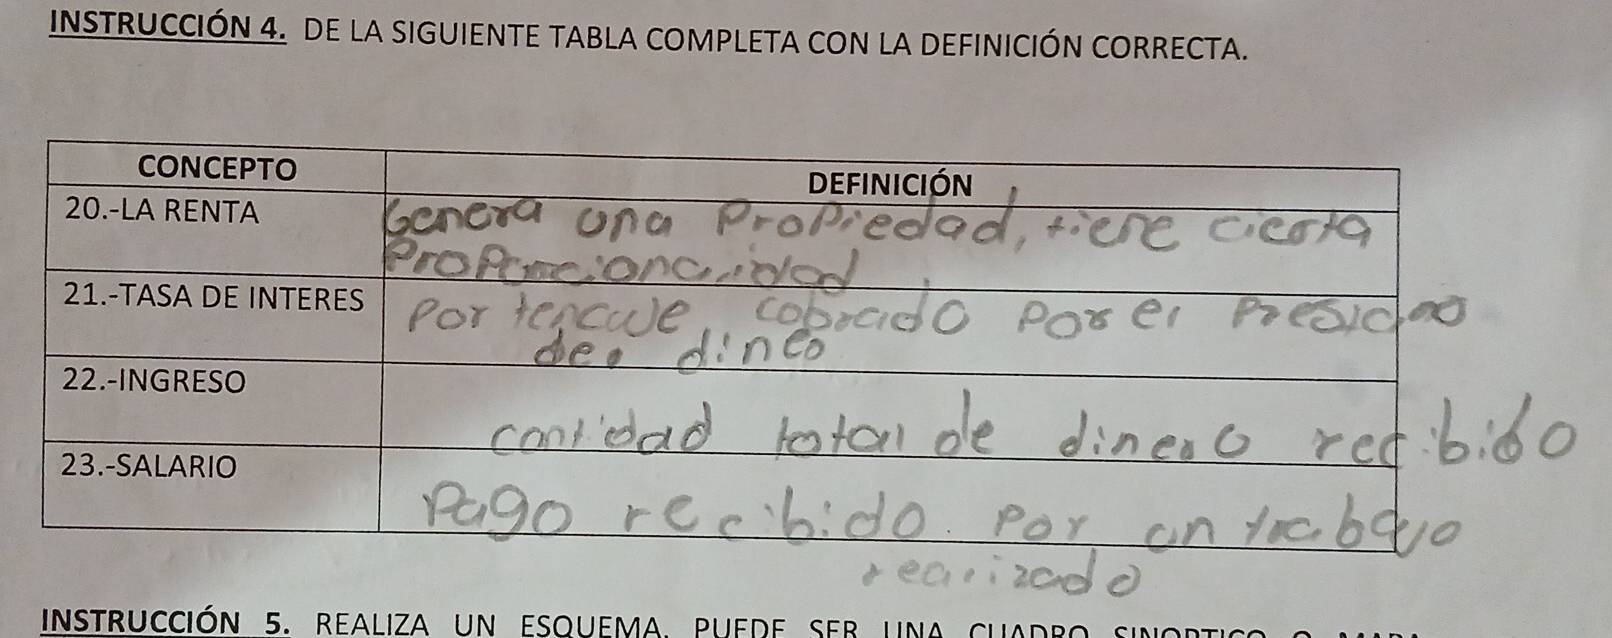 INSTRUCCIÓN 4. DE LA SIGUIENTE TABLA COMPLETA CON LA DEFINICIÓN CORRECTA.
CONCEPTO
DEFINICIÓN
20.-LA RENTA
Genera una Propiedad, tiene cierta
21.-TASA DE INTERES
cobrado Por el
22.-INGRESO
cantidad total de dinero recibido
23.-SALARIO
Pago recibido. Por un trabajo
realizado
INSTRUCCIÓN 5. REALIZA UN ESQUEMA, PUEDE SER UNA CUADRO